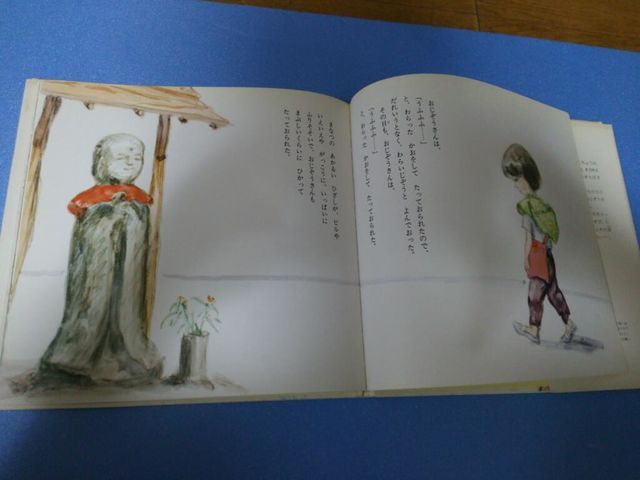 おじぞうさんは、
「うふふふ――」
と、わらった かおをして たっておられたので、
だれいうとなく、わらいじぞうと よんでおった。
その日も、おじぞうさんは、
「うふふふ――」
と、わらった かおをして たっておられた。
まなつの あかるい ひざしが、ヒらや
ふりそそいで、おじぞうさんも
まぶしいくらいに ひかって
たっておられた。